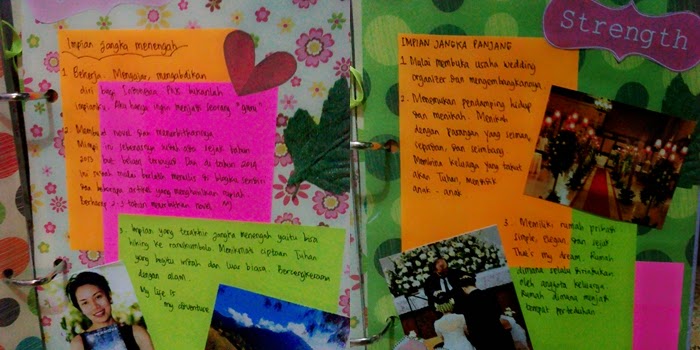 Impian jangka menengah
1. Bekerja. Mengajar, mengabdikan
diri bagi Indonesia. PNS bukanlah
impianku. Aku hanya ingin menjadi seorang "guru"
2. Membuat novel dan menerbitkannya
Mimpi ini sebenarnya sudah ada sejak tahun
2013 but belum terwujud. Dan di tahun 2014
ini sudah mulai berlatih menulis di blog sendiri
dan beberapa artikel yang
2-3 tahun novel
3. Impian yang terakhir jangka menengah yaitu bisa
hiking ke ranukumbolo. Menikmati ciptaan Tuhan
yang begitu indah dan luar biasa. Bercengkerama
dengan alam.
My life is
my adventure
Strength
IMPIAN JANGKA PANJANG
1. Mulai membuka usaha wedding
organizer dan mengembangkannya
2. Menemukan pendamping hidup
dan menikah. Menikah
dengan pasangan yang seiman,
sepadan, dan seimbang
Membina keluarga yang takut
akan Tuhan, mendidik
anak-anak
3. Memiliki rumah pribadi
Simple, elegan dan sejuk
That's my dream. Rumah
dimana selalu dirindukan
oleh anggota keluarga
Rumah dimana menjadi
tempat perteduhan